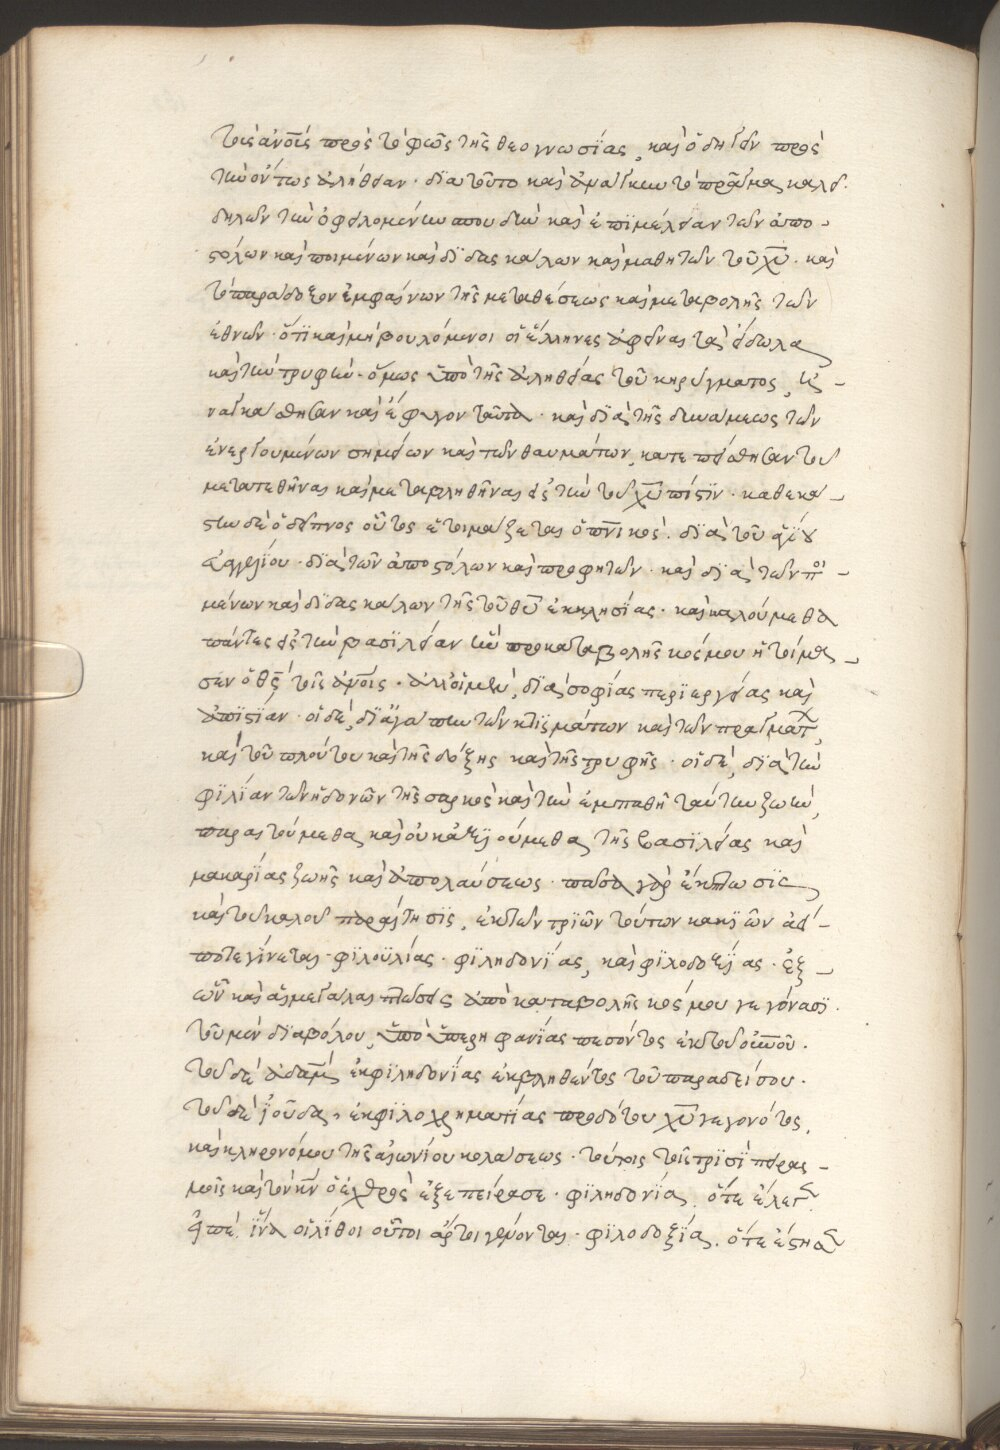 τοῖς ἀνοις πρὸς τὸ φῶς τῆς θεογνωσΐας, καὶ ὁδηγεῖν πρὸς
τὴν ὄντως ἀλήθειαν· δϊὰ τοῦτο καὶ ἀνάγκην τὸ πρᾶγμα καλεῖ·
δηλῶν τὴν ὀφειλομένην σπουδὴν καὶ ἐπϊμέλειαν τῶν ἀπο-
στόλων καὶ ποιμένων καὶ δϊδασκάλων καὶ μαθητῶν τοῦ χυ· καὶ
τὸ παράδοξον ἐμφαίνων τῆς μεταθέσεως καὶ μεταβολῆς τῶν
ἐθνῶν· ὅτϊ καὶ μὴ βουλόμενοι οἱ ἕλληνες ἀφεῖναι τὰ εἴδωλα
καὶ τὴν τρυφὴν· ὅμως ὑπὸ τῆς ἀληθείας τοῦ κηρύγματος, ἠ-
ναγκάσθησαν καὶ ἔφυγον ταῦτα· καὶ δϊὰ τῆς δυνάμεως τῶν
ἐνεργουμένων σημείων καὶ τῶν θαυμάτων, κατεπείσθησαν τοῦ
μετατεθῆναι καὶ μεταβληθῆναι εἰς τὴν τοῦ χυ πίστϊν· καθεκά-
στην δὲ ὁ δεῖπνος οὗτος ἑτοιμάζεται ὁ πνικὸς· δϊὰ τοῦ ἁγίου
εὐαγγελΐου· δϊὰ τῶν ἀποστόλων καὶ προφητῶν· καὶ δϊὰ τῶν ποι-
μένων καὶ δϊδασκάλων τῆς τοῦ θυ ἐκκλησίας· καὶ καλούμεθα
πάντες εἰς τὴν βασϊλείαν ἣν προκαταβολῆς κόσμου ἡτοίμα-
σεν ὁ θς τοῖς ἀνοις· ἀλλ' οἱ μὲν, δϊὰ σοφίας περϊεργείας καὶ
ἀπϊστίαν· οἱ δὲ, δϊ' ἀγάπην τῶν κτϊσμάτων καὶ τῶν πραγμάτ,
καὶ τοῦ πλούτου καὶ τῆς δόξης καὶ τῆς τρυφῆς· οἱ δὲ, δϊὰ τὴν
φϊλΐαν τῶν ἡδονῶν τῆς σαρκὸς καὶ τὴν ἐμπαθῆ ταύτην ζωὴν,
παραιτούμεθα καὶ οὐκ ἀξϊούμεθα τῆς βασϊλείας καὶ
μακαρίας ζωῆς καὶ ἀπολαύσεως· πᾶσα γὰρ ἔκπτωσϊς
καὶ τοῦ καλοῦ παραίτησϊς, ἐκ τῶν τρϊῶν τούτων κακϊῶν ἀεί-
ποτε γίνεται· φϊλοϋλίας· φϊληδονΐας, καὶ φϊλοδοξΐας· ἐξ
ὧν καὶ αἱ μεγάλαι πτώσεις ἀπὸ καταβολῆς κόσμου γεγόνασϊ·
τοῦ μὲν δϊαβόλου, ὑπὸ ὑπερηφανΐας πεσόντος ἐκ τοῦ οὐνοῦ·
τοῦ δὲ ἀδὰμ ἐκ φϊληδονΐας ἐκβληθέντος τοῦ παραδείσου·
τοῦ δὲ ἰούδα, ἐκ φϊλοχρηματίας προδότου χυ γεγονότος,
καὶ κληρονόμου τῆς αἰωνίου κολάσεως· τούτοις τοῖς τρϊσϊ πειρασ-
μοῖς καὶ τὸν κν ὁ ἐχθρὸς ἐξεπείρασε· φϊληδονία, ὅτε ἔλεγεν
εἰπὲ ἵνα οἱ λίθοι οὗτοι ἄρτοι γένωνται· φϊλοδοξΐα, ὅτε ἔστησεν